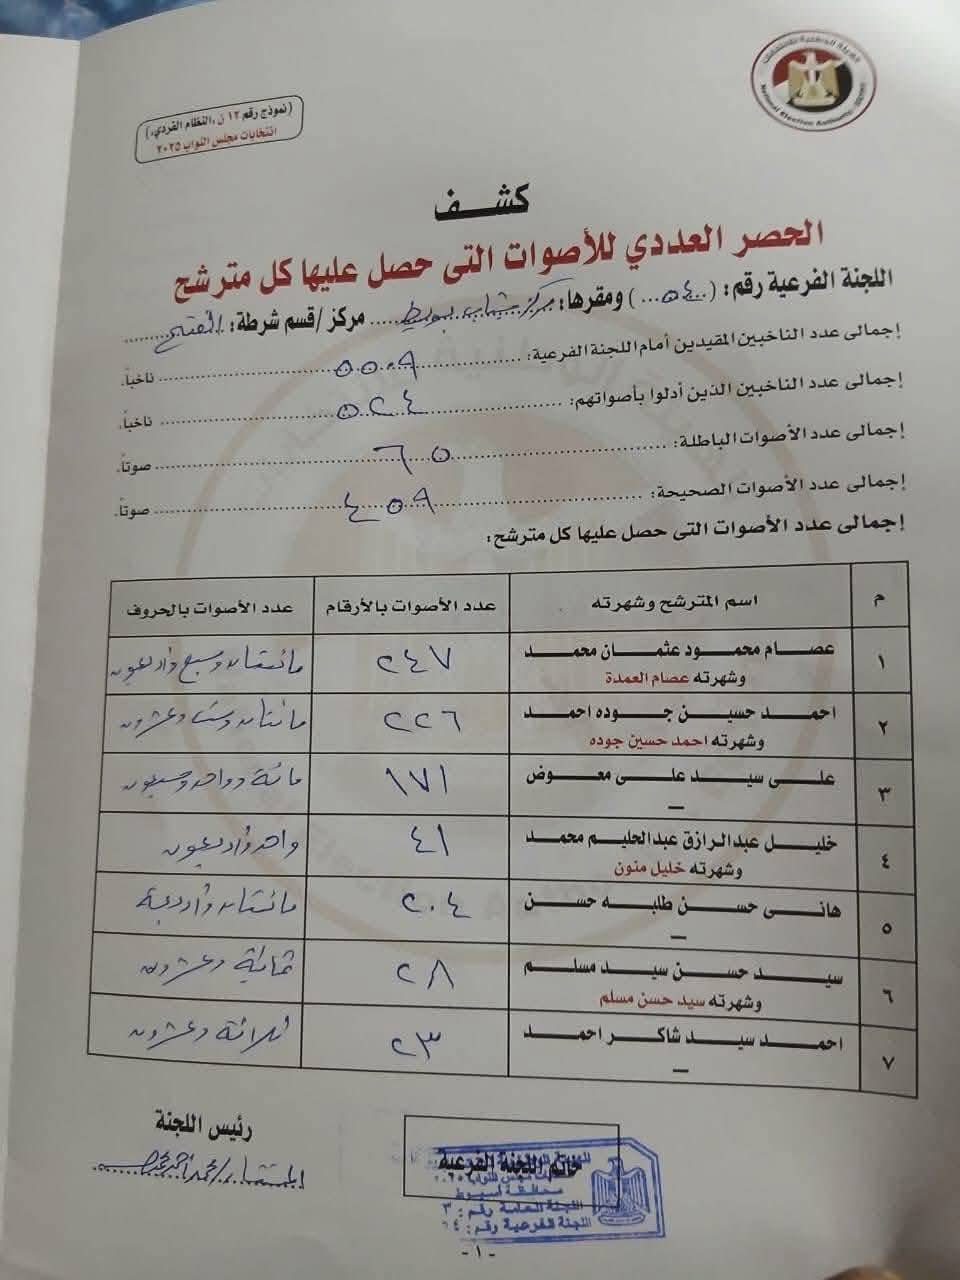 الهيئة الوطنية للانتخابات
National Election Authority - EGYPT
(نموذج رقم ١٢ ن ، النظام الفردي ،)
انتخابات مجلس النواب ٢٠٢٥
كشف
الحصر العددي للأصوات التى حصل عليها كل مترشح
اللجنة الفرعية رقم: (٥٤) ومقرها: مركز شباب بويط مركز /قسم شرطة: الفتح
إجمالى عدد الناخبين المقيدين أمام اللجنة الفرعية: ٥٥٠٩ ناخباً.
إجمالى عدد الناخبين الذين أدلوا بأصواتهم: ٥٢٤ ناخباً.
إجمالى عدد الأصوات الباطلة: ٦٥ صوتاً.
إجمالى عدد الأصوات الصحيحة: ٤٥٩ صوتاً.
إجمالى عدد الأصوات التى حصل عليها كل مترشح:
م اسم المترشح وشهرته عدد الأصوات بالأرقام عدد الأصوات بالحروف
١ عصام محمود عثمان محمد ٢٤٧ مائتان وسبع وأربعون
وشهرته عصام العمدة
٢ احمد حسين جوده احمد ٢٢٦ مائتان وست وعشرون
وشهرته احمد حسين جوده
٣ على سيد على معوض ١٧١ مائة وواحد وسبعون
–
٤ خليل عبدالرازق عبدالحليم محمد ٤١ واحد وأربعون
وشهرته خليل منون
٥ هانى حسن طلبه حسن ٢٠٤ مائتان وأربعة
–
٦ سيد حسن سيد مسلم ٢٨ ثمانية وعشرون
وشهرته سيد حسن مسلم
٧ احمد سيد شاكر احمد ٢٣ ثلاثة وعشرون
–
رئيس اللجنة
المستشار/
خاتم اللجنة الفرعية
محافظة أسيوط
اللجنة العامة رقم: ٣
اللجنة الفرعية رقم:
- ١ -